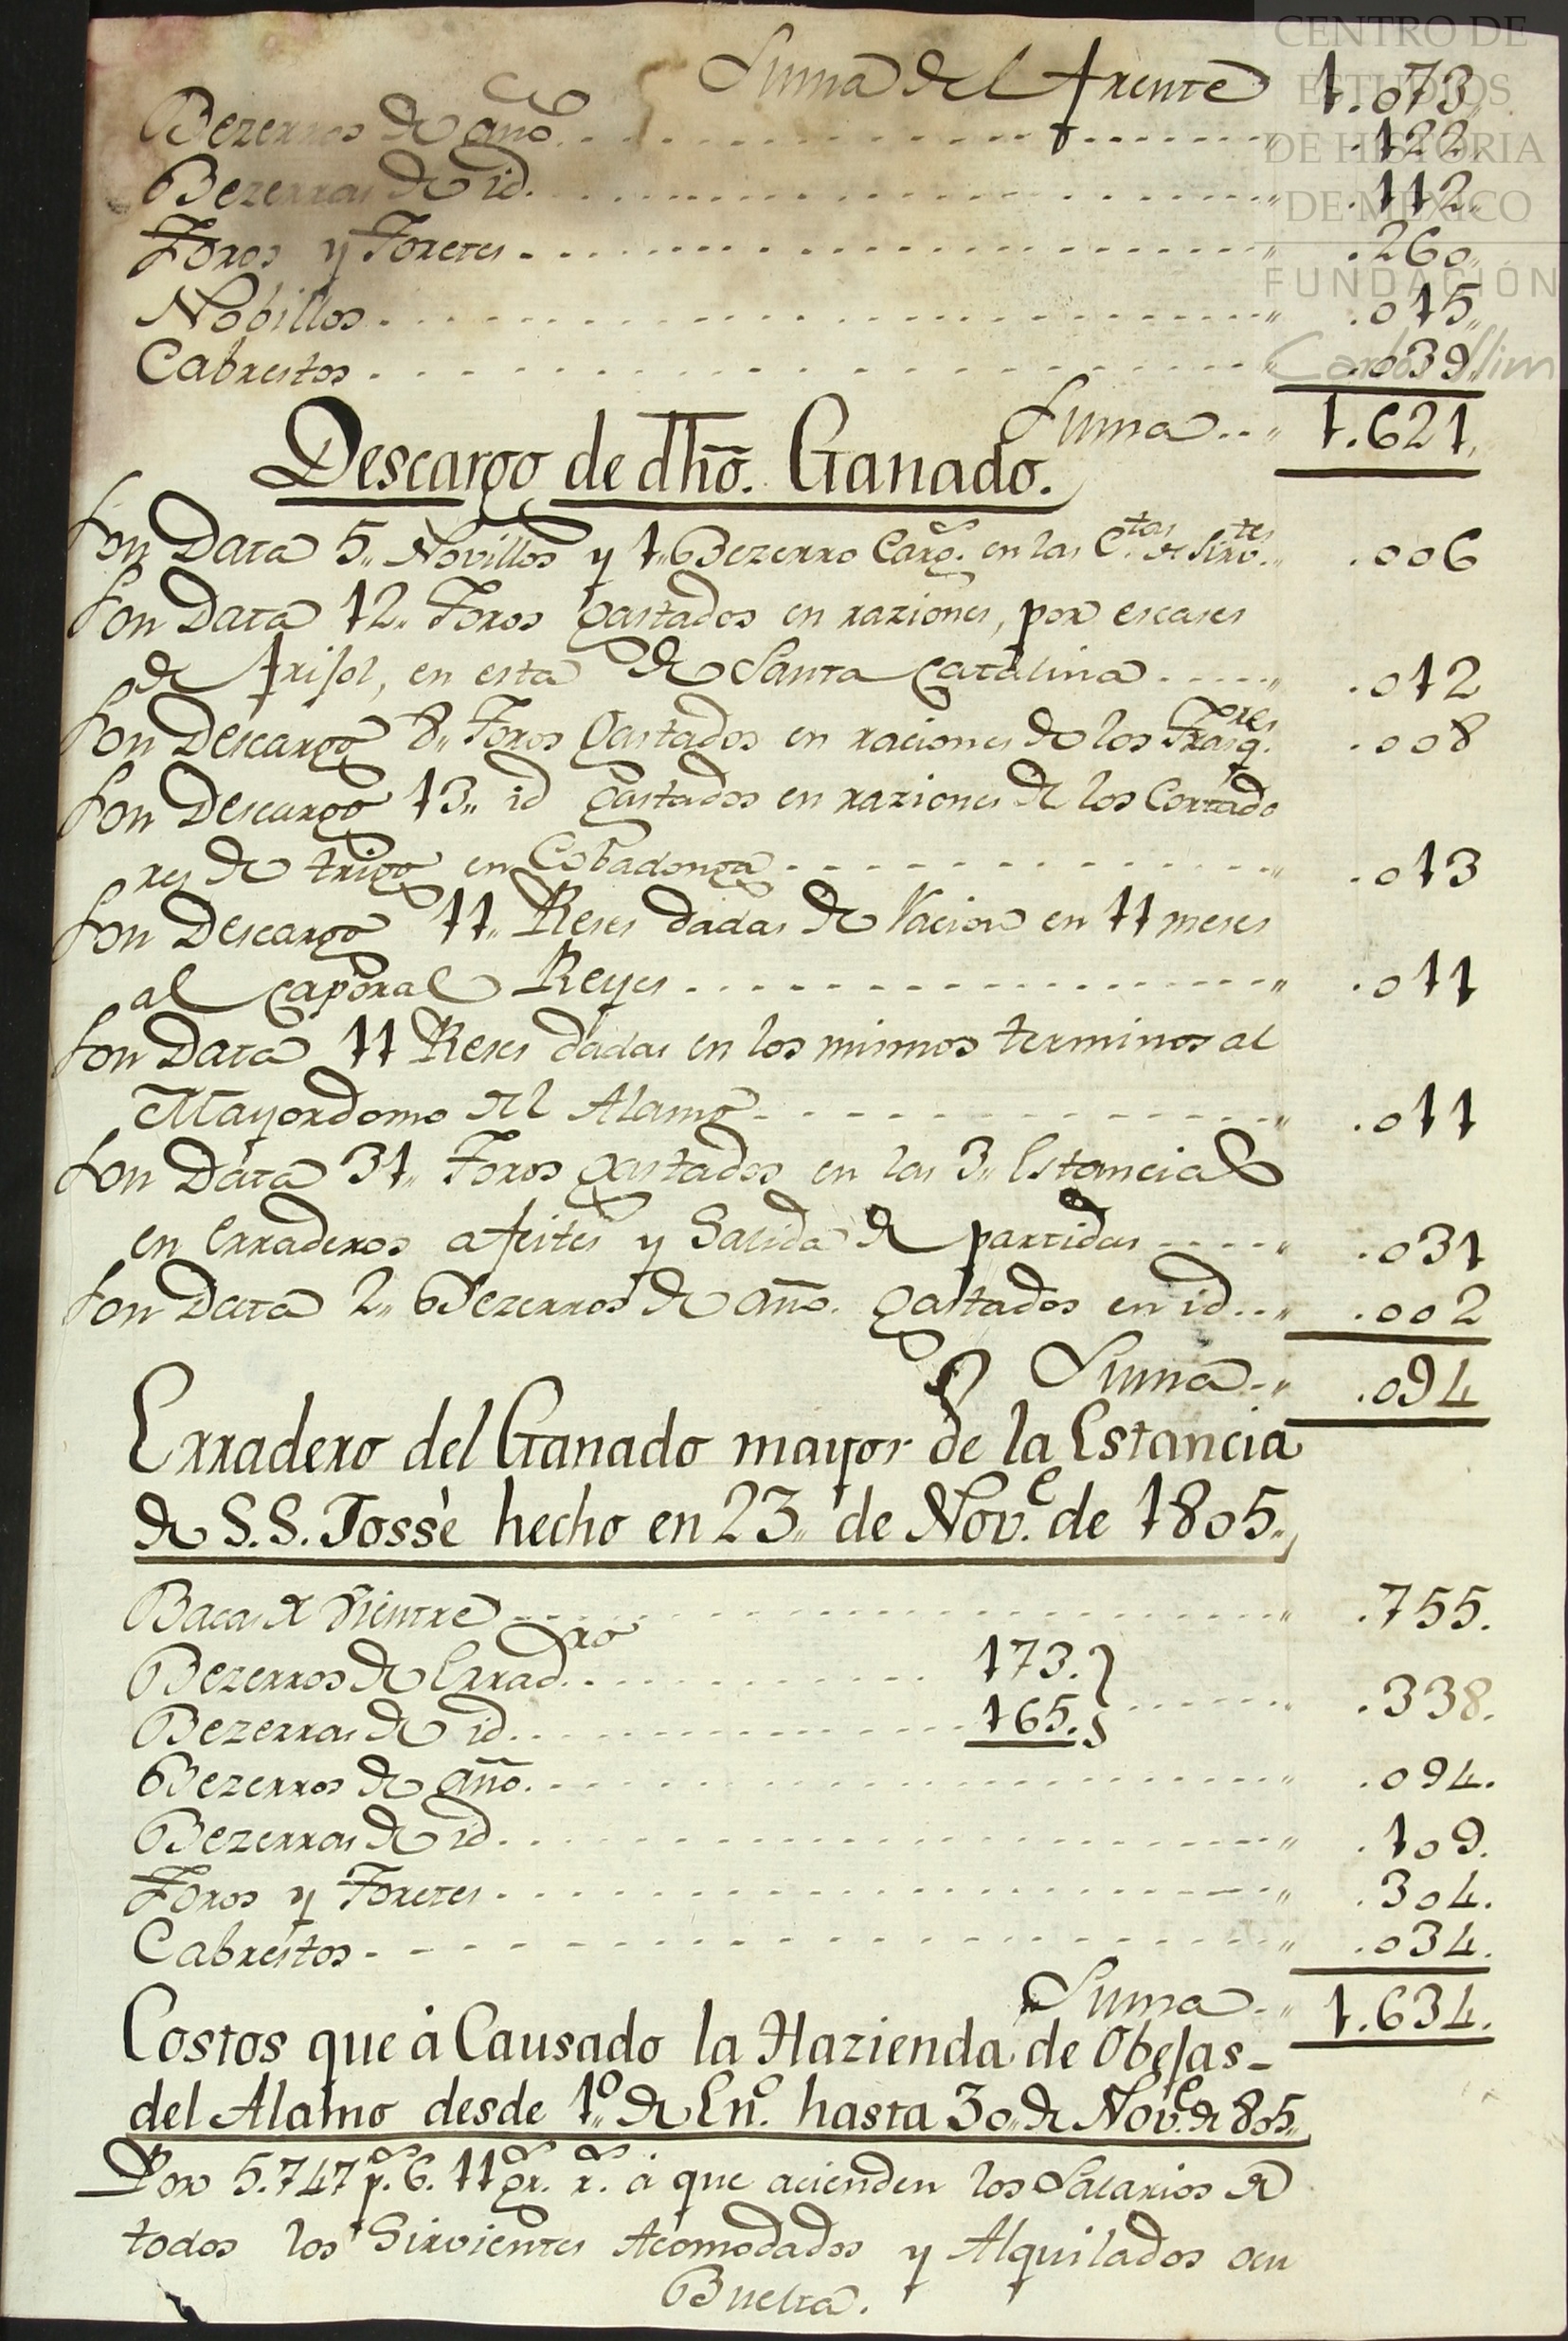 CENTRO DE
ESTUDIOS
DE HISTORIA
DE MÉXICO
FUNDACIÓN
Carlos Slim
Suma del frente 1.073,,
Bezerros de año. 122,,
Bezerras de id. .112,,
Toros y Toretes .260,,
Nobillos .015,,
Cabrestos .039,,
Suma 1.621,,
Descargo de dhō. Ganado.
Son Data 5,, Novillos y 1,, Bezerro Carg.s en las C.tas de Sirv.tes .006
Son Data 12,, Toros gastados en raziones, por escases
de frisol, en esta de Santa Catalina .012
Son Descargo 8,, Toros Gastados en raciones de los Trasq.res .008
Son Descargo 13,, id gastados en raziones de los Cortado
res de trigo en Cobadonga .013
Son Descargo 11,, Reses dadas de Racion en 11 meses
al caporal Reyes .011
Son Data 11 Reses dadas en los mismos terminos al
Mayordomo del Alamo .011
Son Data 31,, Toros gastados en las 3,, Estancias
en Erraderos afeites y Salida de partidas .031
Son Data 2,, Bezerros de año. gastados en id .002
Suma .094
Erradero del Ganado mayor de la Estancia
de S.S. Jossè hecho en 23,, de Nov.e de 1805,,
Bacas de Vientre .755.
Bezerros de Errad.ro 173.
Bezerras de id 165. .338.
Bezerros de año. .094.
Bezerras de id .109.
Toros y Toretes .304.
Cabrestos .034.
Suma 1.634.
Costos que à Causado la Hazienda de Obejas-
del Alamo desde 1.º de En.º hasta 30,, de Nov.e de 805,,
Por 5.747 p.s 6. 11 gr.s r.s à que acienden los Salarios de
todos los Sirvientes Acomodados y Alquilados en
Buelta.